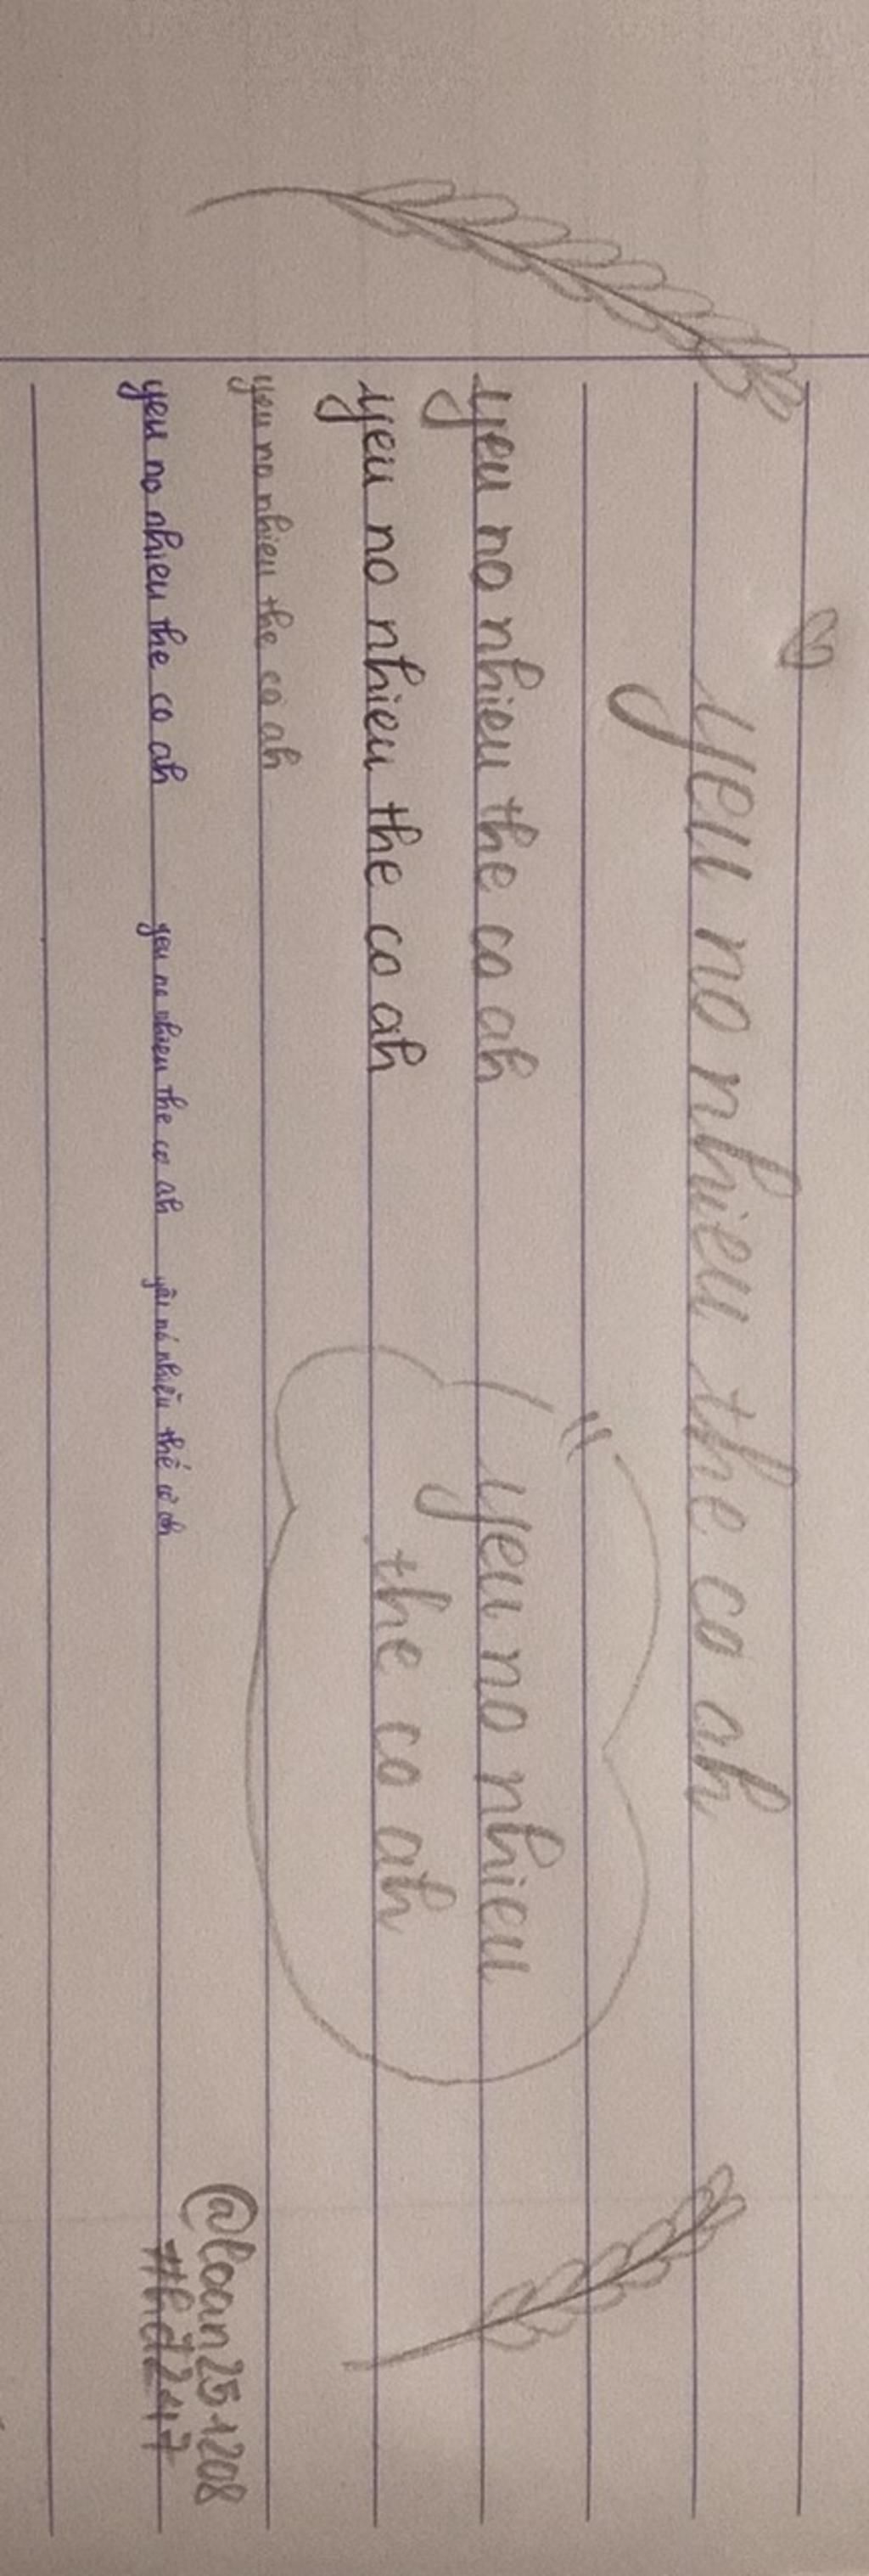 yeu no nhieu the co ah
yeu no nhieu the co ah
yeu no nhieu the co ah
yeu no nhieu
the co ah
yeu no nhieu the co ah
yeu no nhieu the co ah
yeu no nhieu the co ah
yêu nó nhiều thế cơ ah
@loan251208
#hd247